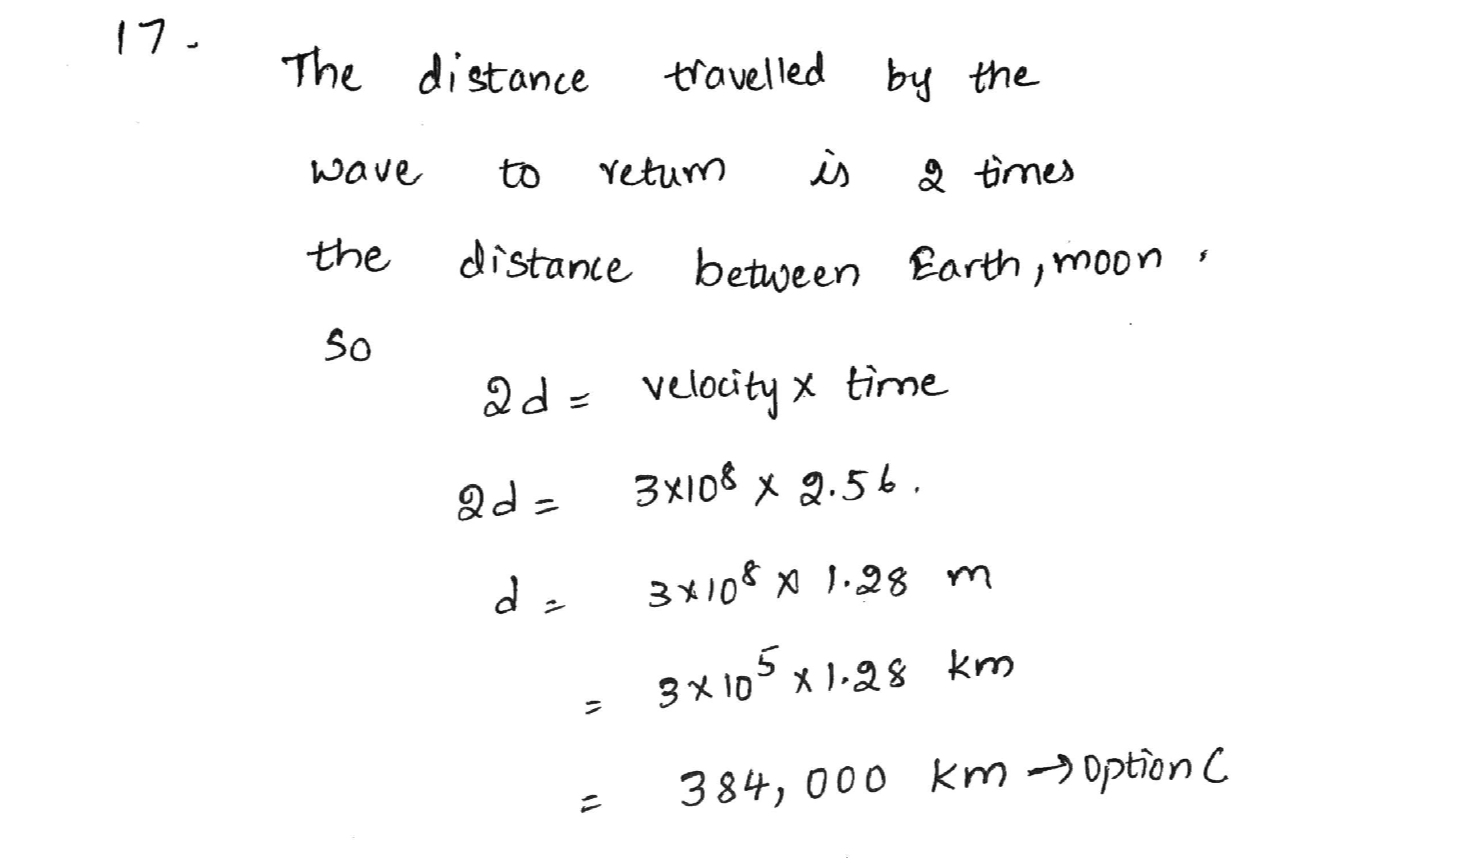 17.
The distance travelled by the
wave to return is 2 times
the distance between Earth, moon.
So
2d = velocity x time
2d = 3x10⁸ x 2.56.
d = 3x10⁸ x 1.28 m
= 3x10⁵ x 1.28 km
= 384,000 km → Option C